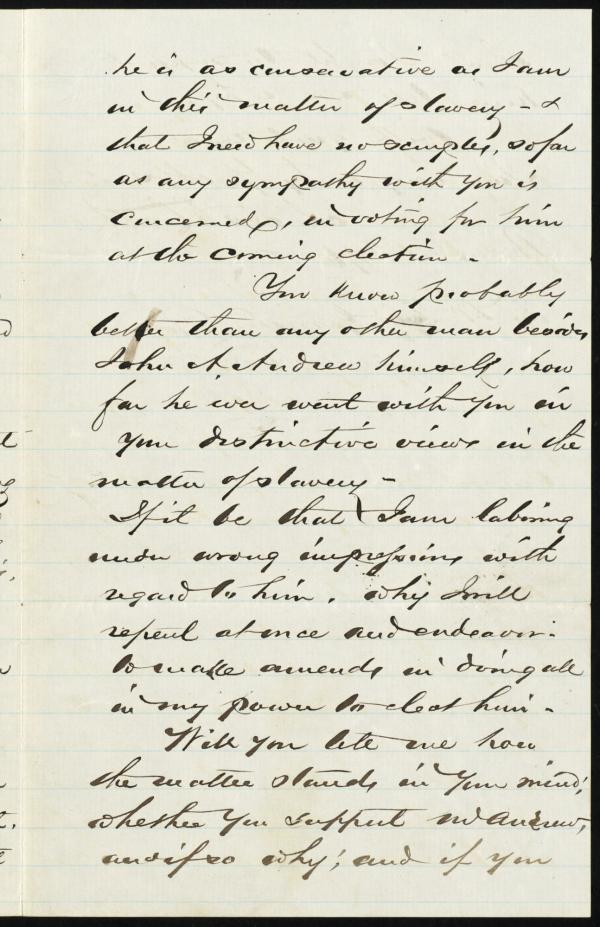 he is as conservative as I am
in this matter of slavery - &
that I need have no scruples, so far
as any sympathy with you is
concerned, in voting for him
at the coming election -
You know probably
better than any other man besides
John A Andrew himself, how
far he ever went with you in
your distinctive views in the
matter of slavery -
If it be that I am laboring
under wrong impressions with
regard to him, why I will
repent at once and endeavor
to make amends in doing all
in my power to elect him -
Will you lete me how
the matter stands in your mind;
whether you support Mr Andrew,
and if so why; and if you